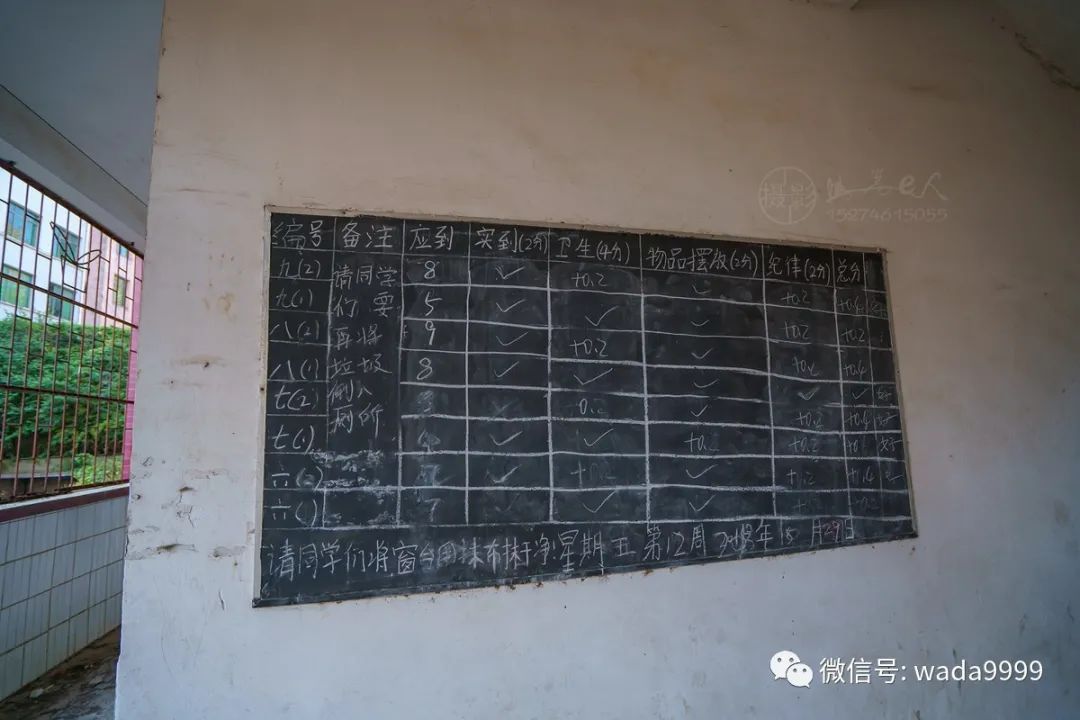 摄影 e人
15274615055
编号 备注 应到 实到(2分) 卫生(4分) 物品摆放(2分) 纪律(2分) 总分
九(2) 请同学 8 ✓ +0.2 ✓ +0.2 +0.4
九(1) 们要 5 ✓ ✓ ✓
八(2) 再将 9 ✓ +0.2 ✓ +0.2 +0.2
八(1) 垃圾 8 ✓ ✓ ✓ +0.2 +0.4
七(2) 倒入 ✓ 0.2 ✓ ✓ ✓ 好
七(1) 厕所 ✓ ✓ +0.2 +0.2 +0.4 好
六(2) ✓ +0.2 ✓ +0.2 +0.4
六(1) 7 ✓ ✓ ✓
请同学们将窗台用抹布抹干净!星期五 第12周 年 月29日
微信号: wada9999